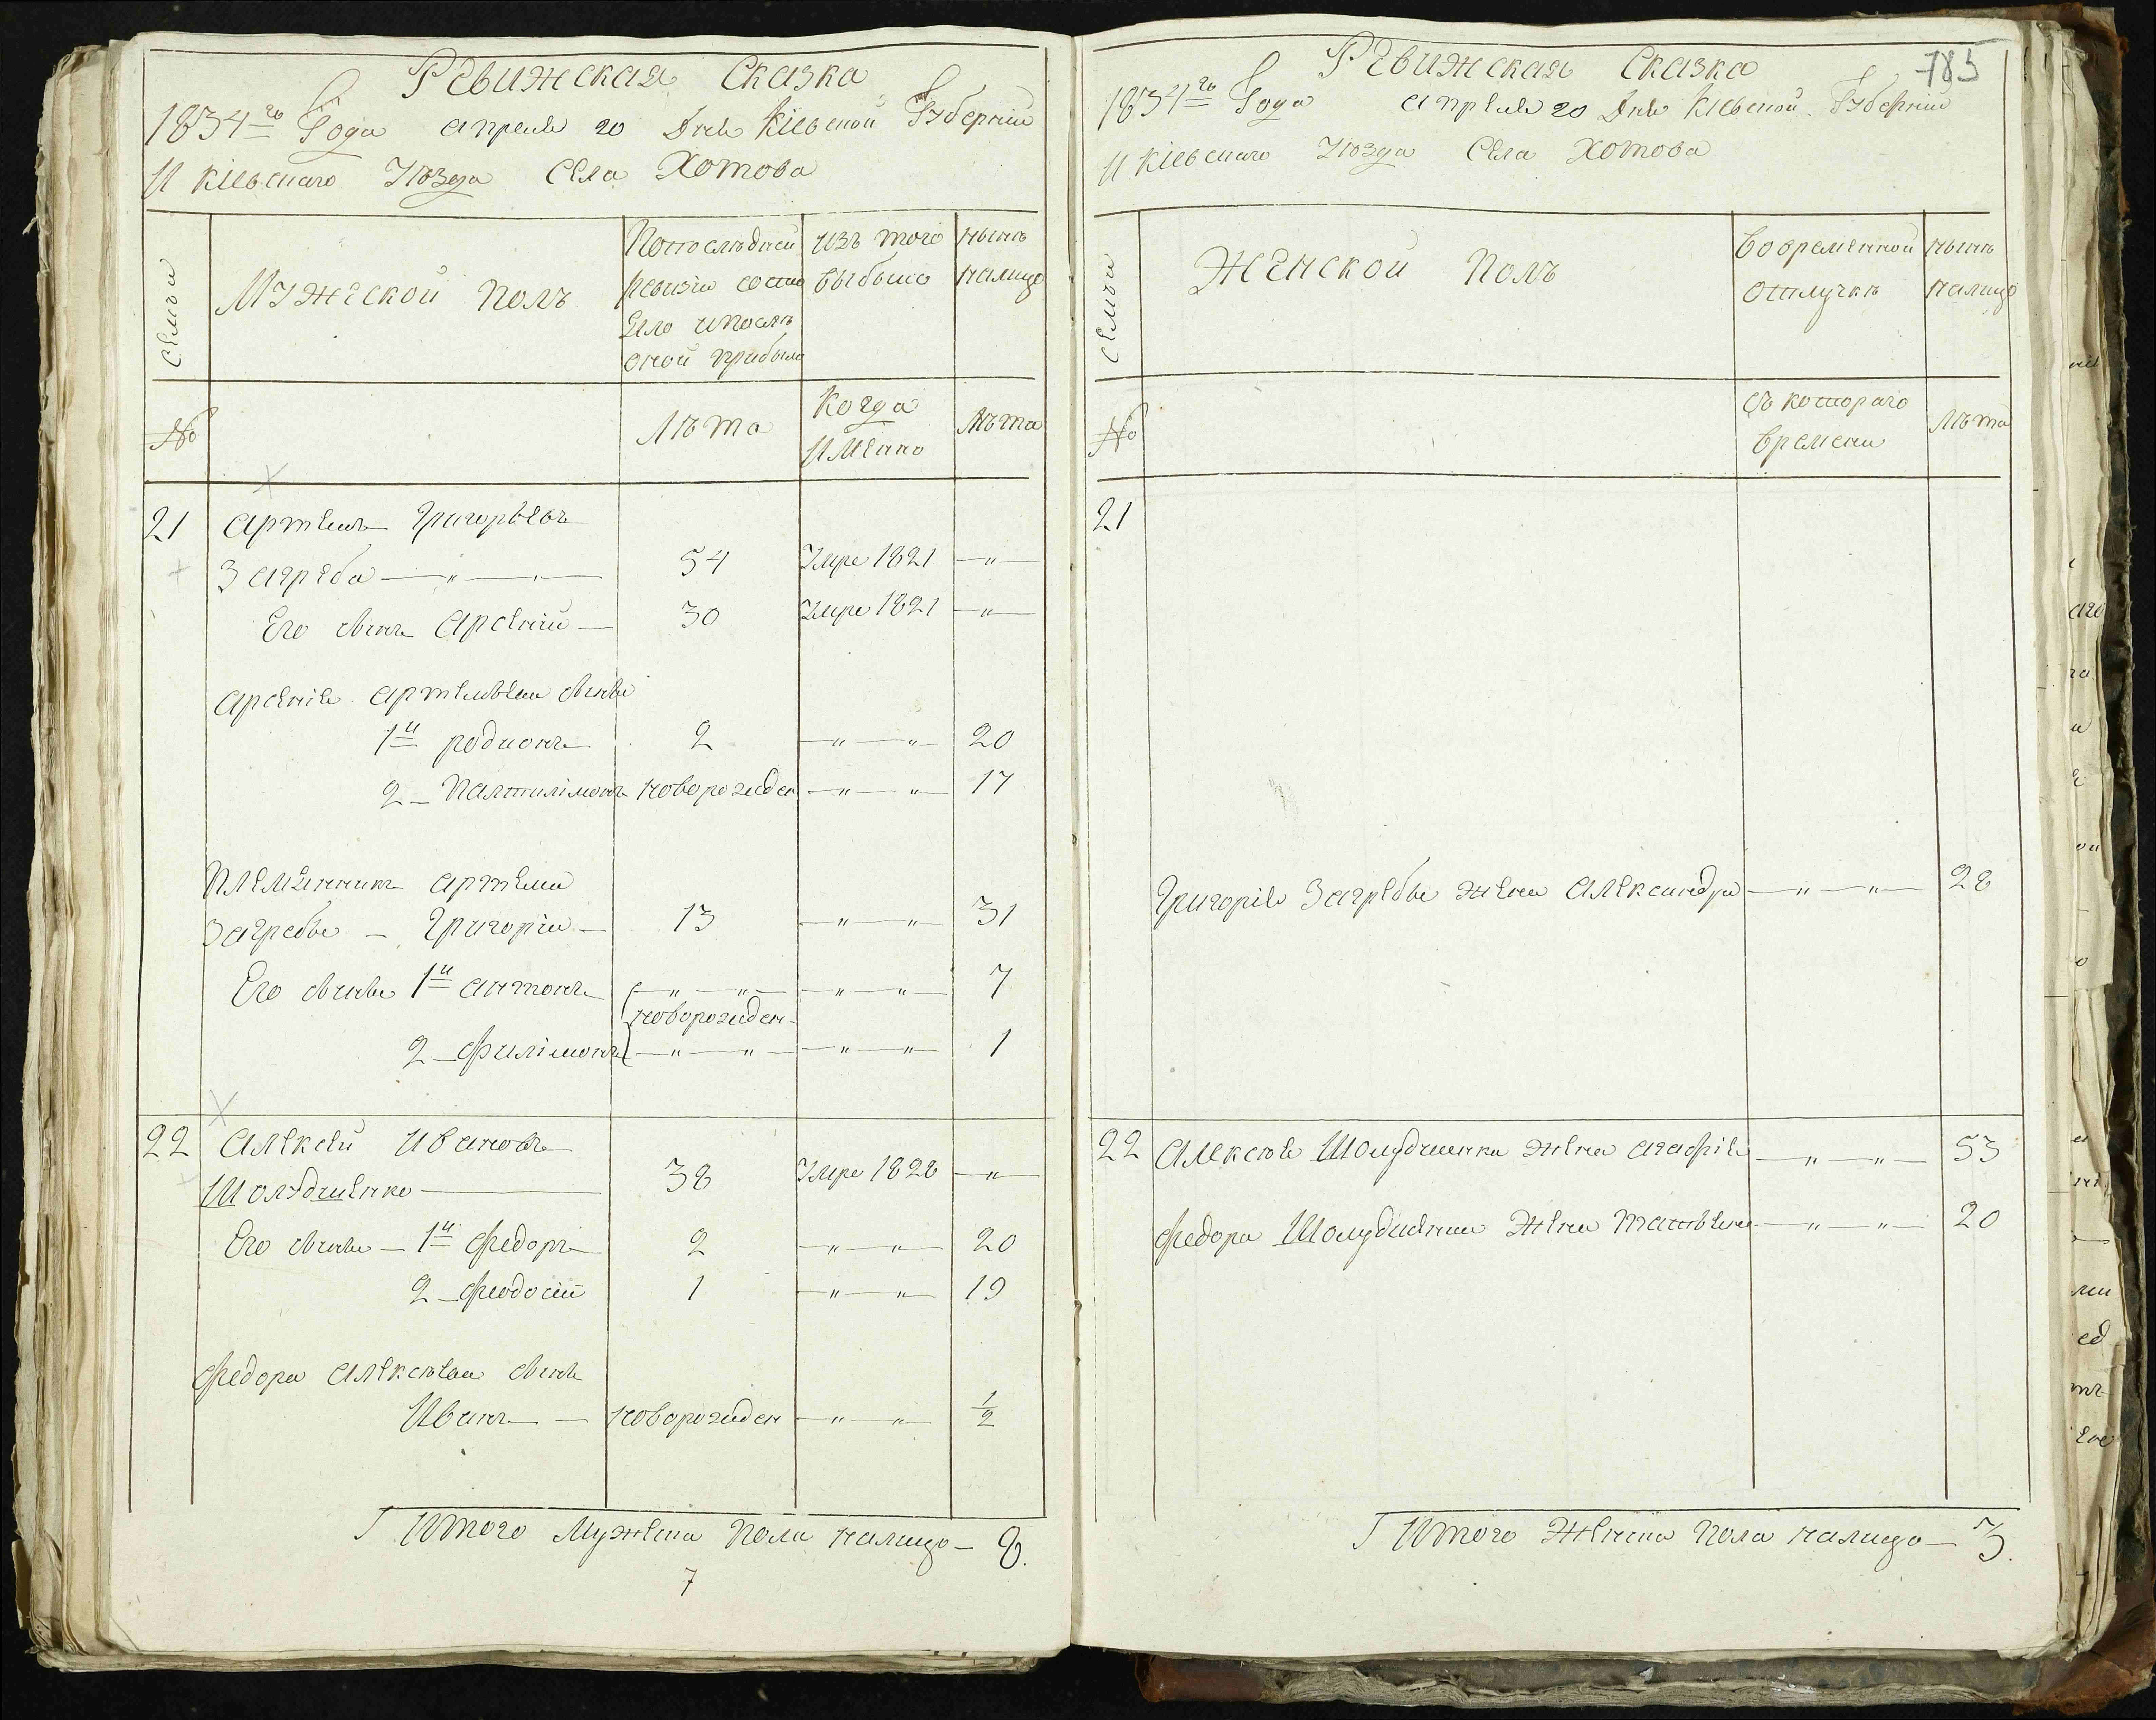 Ревижская Сказка
1834го Года апреля 20 Дня Кіевской Губерніи
И Кіевскаго Уѣзда Села Хотова
Семьи
Мужескои полъ
Попослѣдней
ревизіи состо
яло ипослѣ
оной прибыло
изъ того
выбыло
нынѣ
налицо
№
Лѣта
Когда
Именно
Лѣта
21 Артемъ Григорьевъ
Загреба — " — " — 54 Умре 1821 — " —
Его сынъ Арсеній — 30 Умре 1821 — " —
Арсенія Артемьева сынья
1й родионъ 2 — " — " — 20
2 — Пантилімонъ новорожден — " — " — 17
Племянникъ Артема
Загребы — Григорій — 13 — " — " — 31
Его сынья 1й антонъ — " — " — — " — " — 7
новорожден —
2 — Филімонъ — " — " — — " — " — 1
22 Алексей Ивановъ
Шолудченко — 38 Умре 1828 — " —
Его сынья — 1й Федоръ 2 — " — " — 20
2 — Феодосій 1 — " — " — 19
Федора Алексѣева сынъ
Иванъ — новорожден — " — " — 1/2
Итого Мужеска Пола налицо — 8.
7
785
Ревижская Сказка
1834го Года апреля 20 Дня Кіевской Губерніи
И Кіевскаго Уѣзда Села Хотова
Семьи
Женской Полъ
Вовременной
отлучкѣ
нынѣ
налицо
№
Съ котораго
времени
Лѣта
21
Григорія Загребы жена Александра — " — " — 28
22 Алексѣя Шолудченка жена Агафія — " — " — 53
Федора жена Татьяна — " — " — 20
Итого Женска Пола налицо — 3.